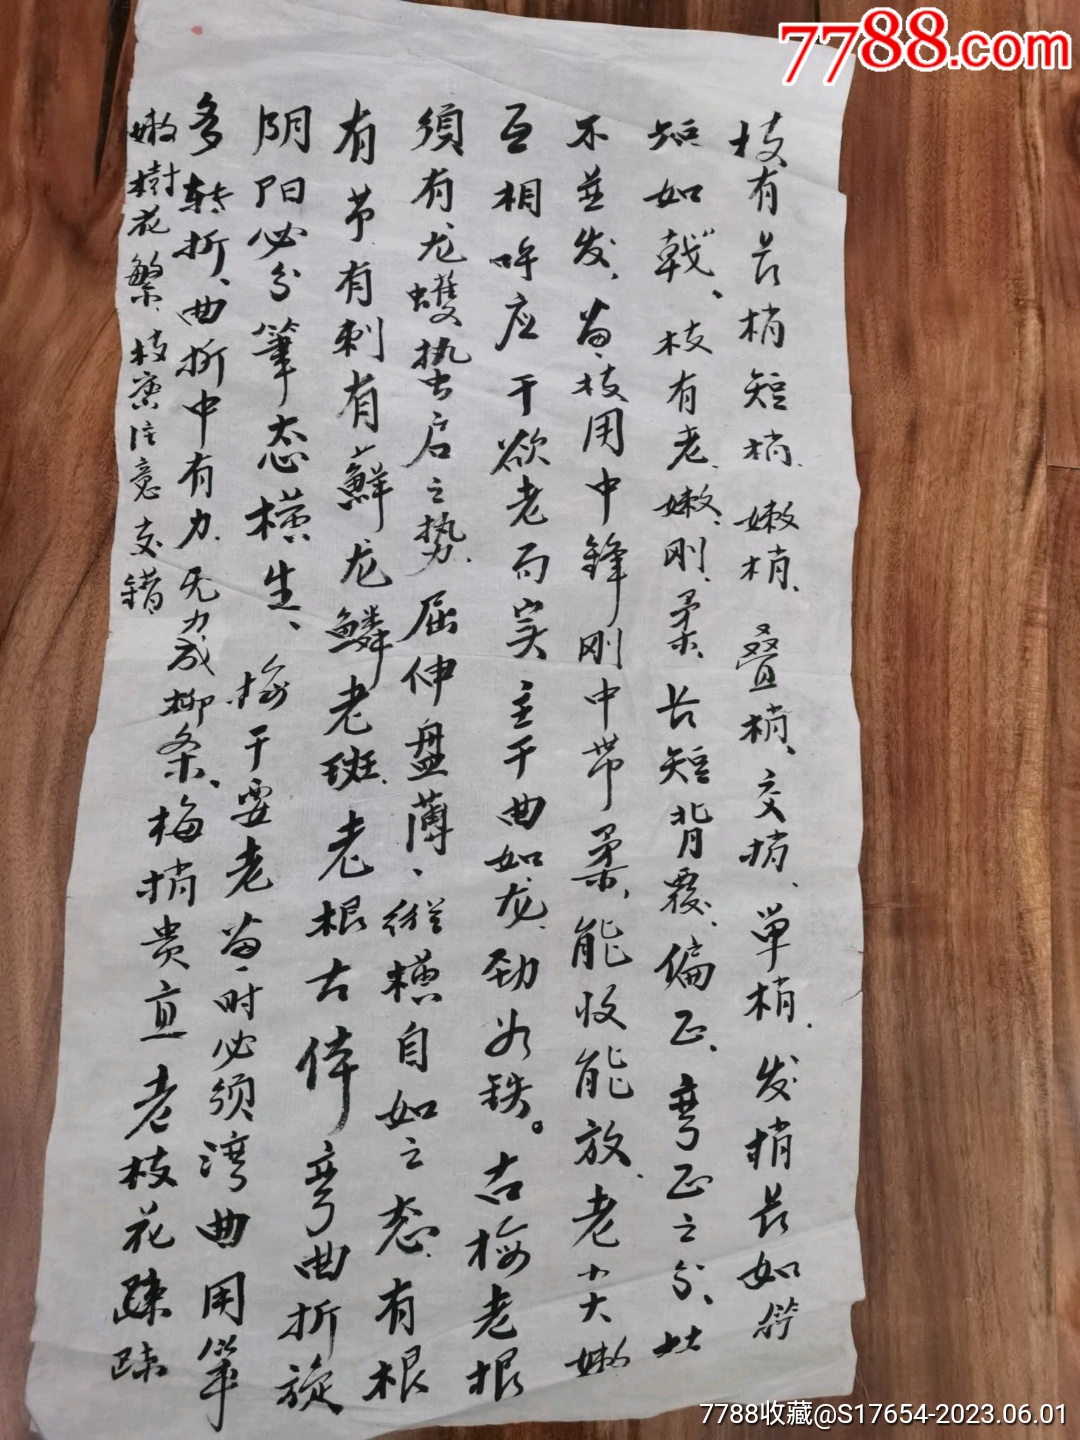 7788.com
枝有长梢短梢、嫩梢、叠梢、交梢、单梢、发梢长如箭
短如戟、枝有老、嫩、刚、柔、长短背覆、偏正、弯正之分、
不并发、画枝用中锋刚中带柔、能收能放、老尖大嫩
互相呼应 干欲老而实 主干曲如龙、劲如铁。古梅老根
须有龙蠖蛰启之势、屈伸盘薄、纵横自如之态、有根
有节有刺有藓龙鳞老斑、老根古体弯曲折旋
阴阳必分笔态横生、梅干要老画时必须湾曲用笔
多转折、曲折中有力、无力成柳条、梅梢贵直老枝花疎
嫩树花繁、枝密注意交错
7788收藏@S17654-2023.06.01